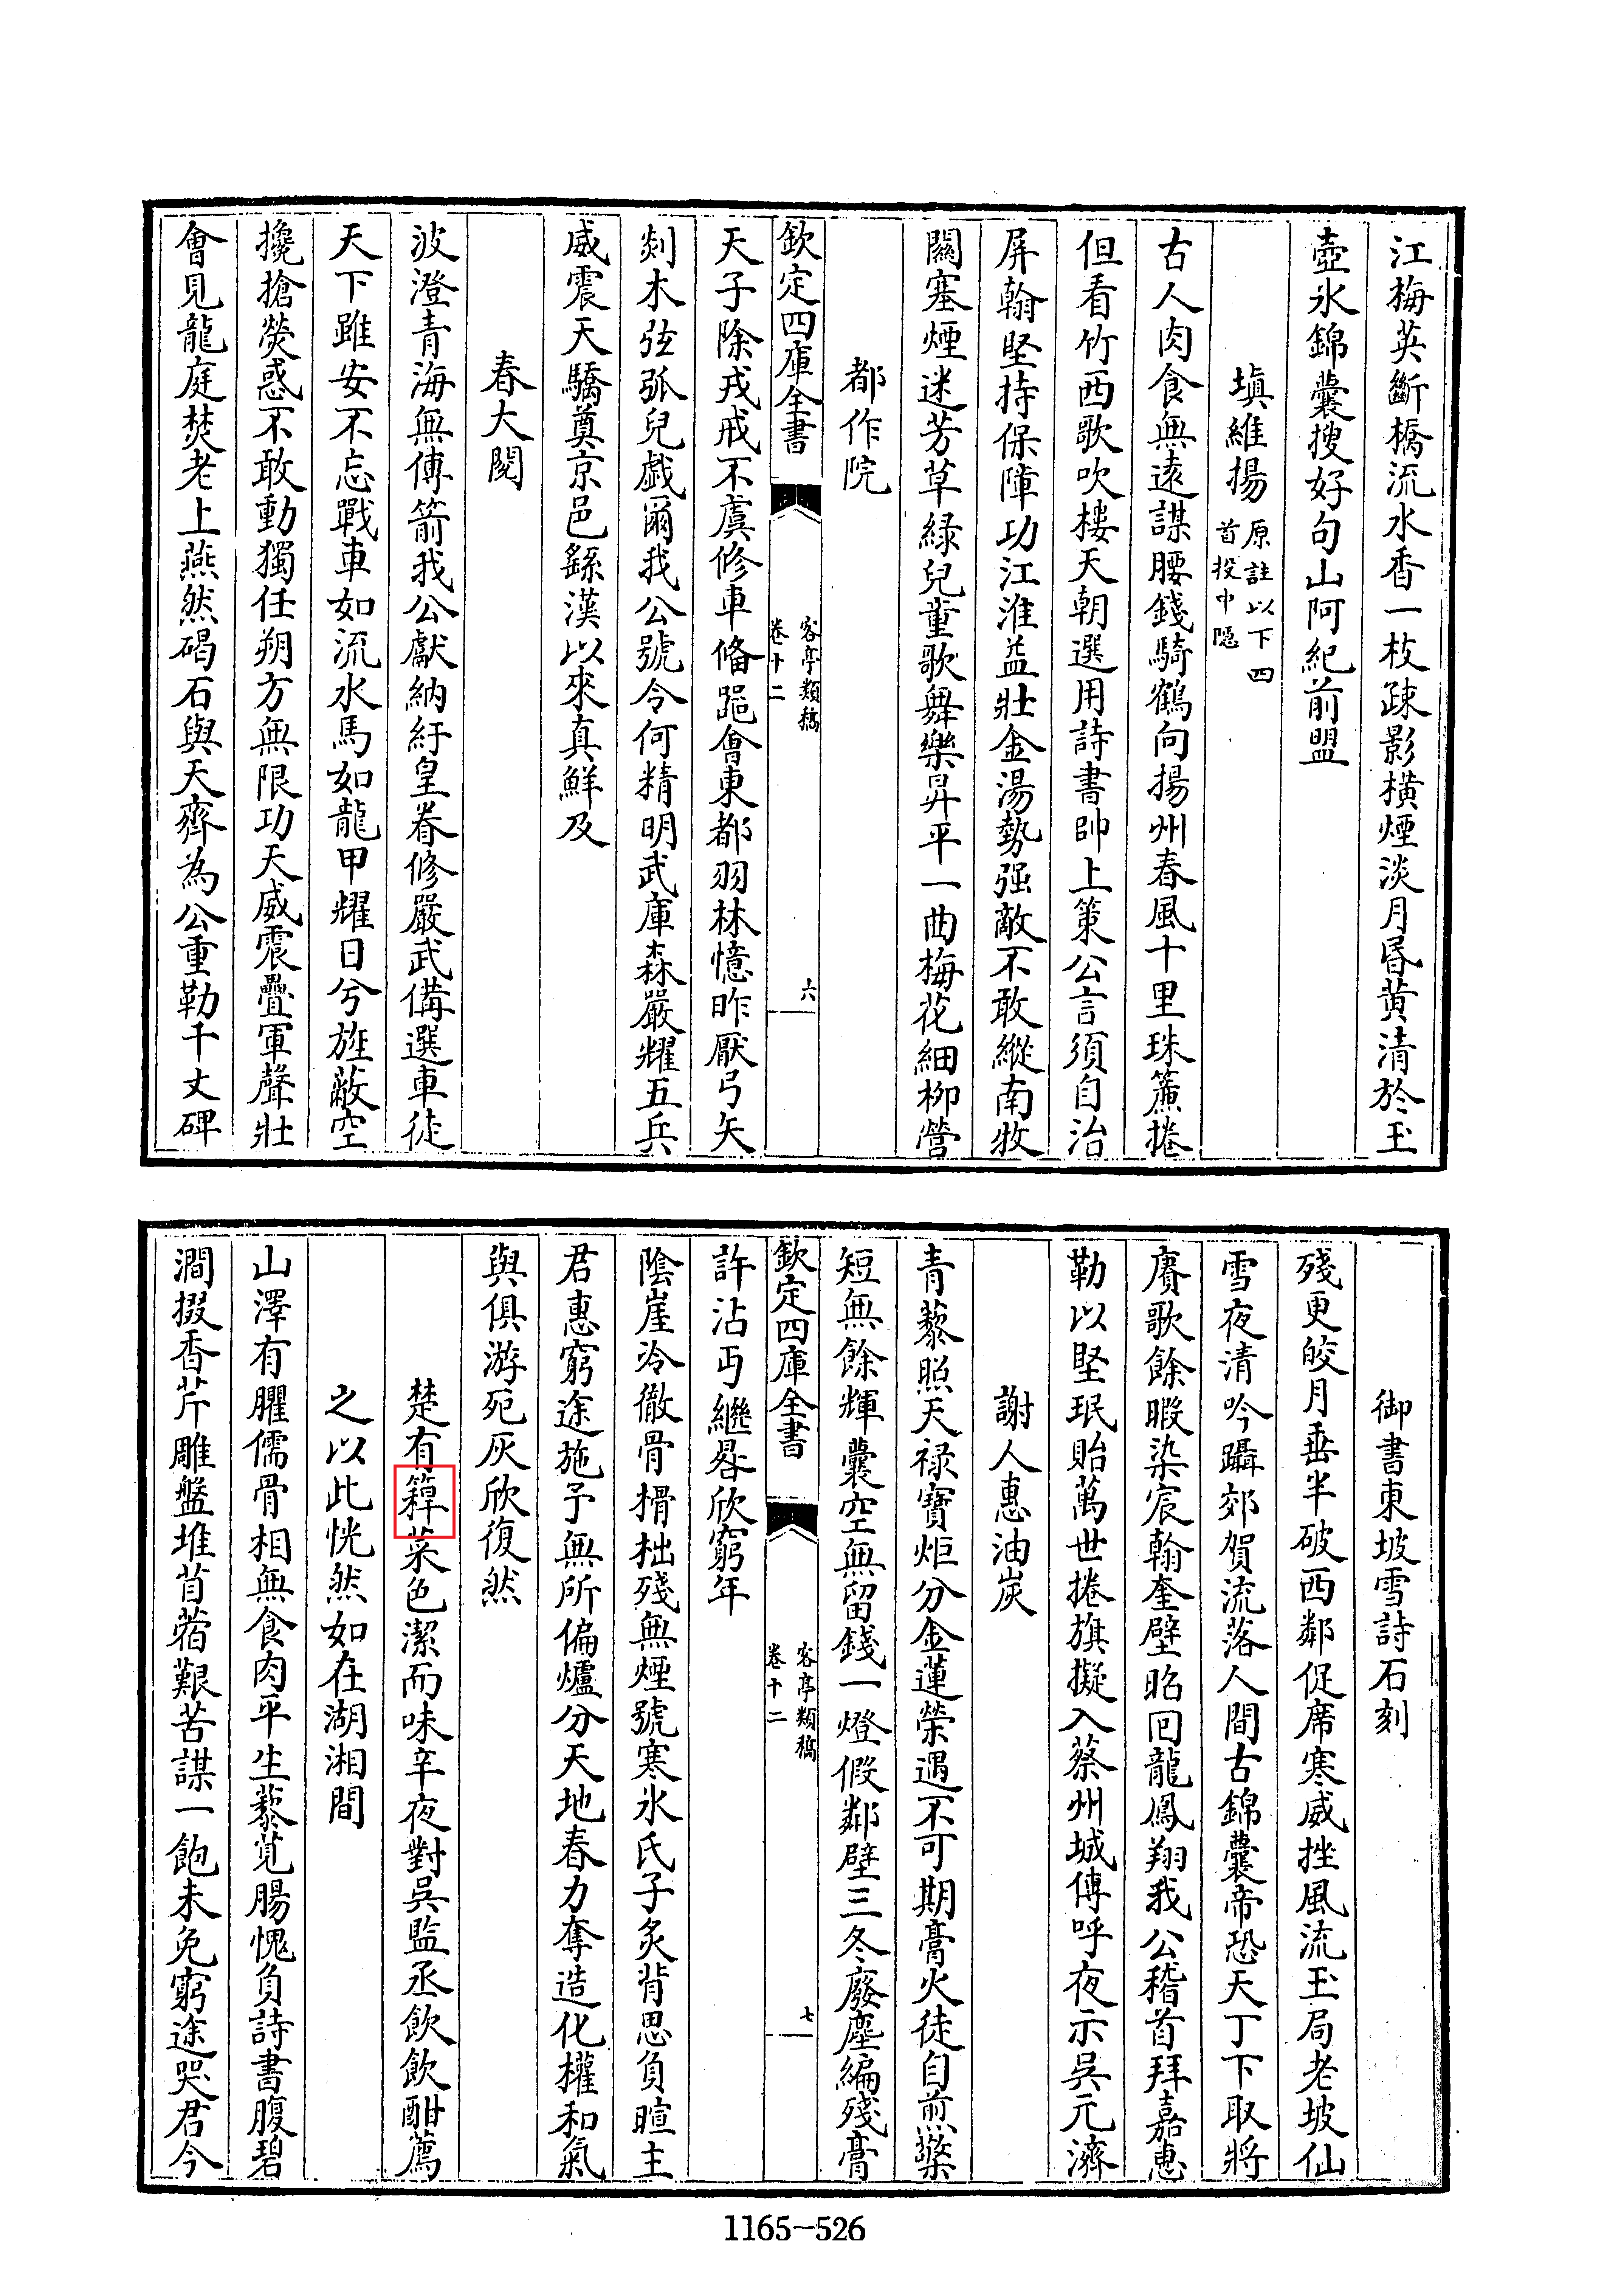 江梅英斷橋流水香一枝疎影横煙淡月昬黄清於玉
壺氷錦囊搜好句山阿紀前盟
塡維揚原註以下四首投中隱
古人肉食無遠謀腰錢騎鶴向揚州春風十里珠簾捲
但看竹西歌吹樓天朝選用詩書帥上策公言須自治
屏翰堅持保障功江淮益壯金湯勢强敵不敢縱南牧
關塞煙迷芳草綠兒童歌舞樂昇平一曲梅花細栁營
都作院
欽定四庫全書
客亭類稿
卷十二
六
天子除戎戒不虞修車偹器會東都羽林憶昨厭弓矢
剡木弦弧兒戯爾我公號令何精明武庫森嚴耀五兵
威震天驕奠京邑繇漢以來真鮮及
春大閱
波澄青海無傳箭我公獻納紆皇眷修嚴武備選車徒
天下雖安不忘戰車如流水馬如龍甲耀日兮旌蔽空
攙搶熒惑不敢動獨任朔方無限功天威震疊軍聲壯
會見龍庭焚老上燕然碣石與天齊為公重勒千丈碑
御書東坡雪詩石刻
殘更皎月垂半破西鄰促席寒威挫風流玉局老坡仙
雪夜清吟躡郊賀流落人間古錦囊帝恐天丁下取將
賡歌餘暇染宸翰奎壁昭囘龍鳳翔我公稽首拜嘉惠
勒以堅珉貽萬世捲旗擬入蔡州城傳呼夜示吳元濟
謝人惠油炭
青藜照天禄寶炬分金蓮榮遇不可期膏火徒自煎檠
短無餘輝囊空無留錢一燈假鄰壁三冬廢塵編殘膏
欽定四庫全書
客亭類稿
卷十二
七
許沾丐繼晷欣窮年
陰崖冷徹骨榾柮殘無煙號寒氷氏子炙背思負暄主
君惠窮途施予無所偏爐分天地春力奪造化權和氣
與俱游死灰欣復然
楚有䕬菜色潔而味辛夜對吳監丞飲飲酣薦
之以此恍然如在湖湘間
山澤有臞儒骨相無食肉平生藜莧腸愧負詩書腹碧
澗掇香芹雕盤堆苜蓿艱苦謀一飽未免窮途哭君今
1165-526